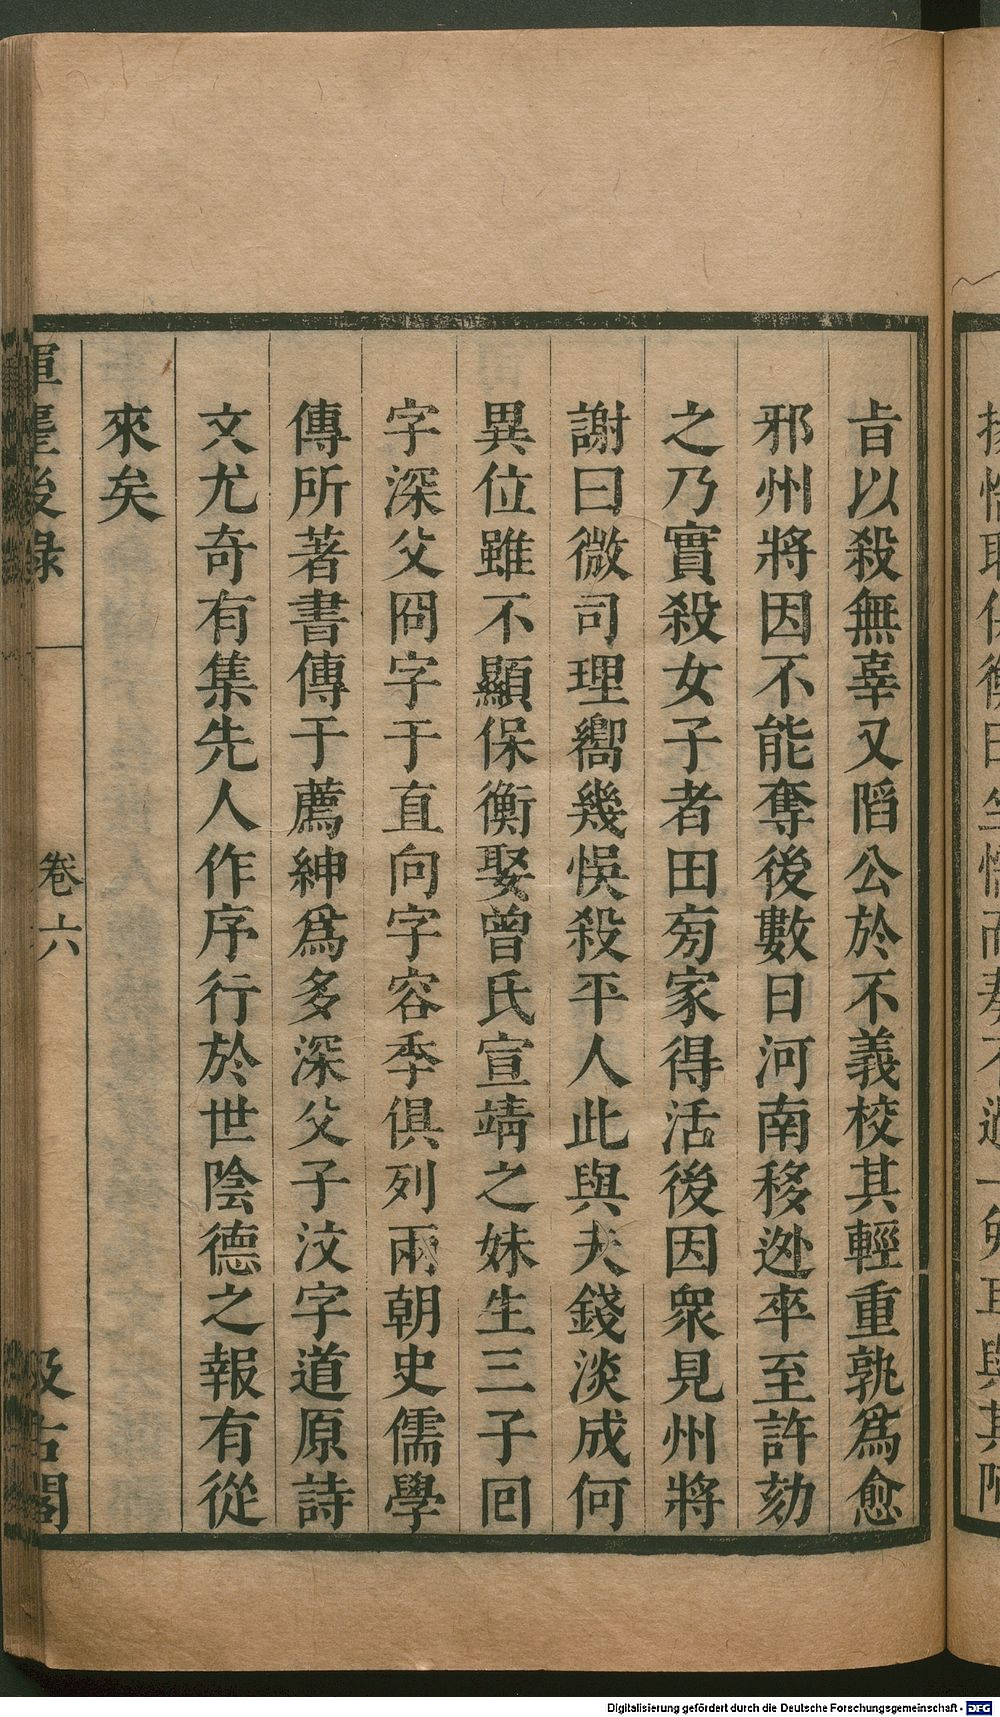 㫖以殺無辜又䧟公於不義校其輕重孰爲愈
邪州將因不能奪後數日河南移逊卒至許劾
之乃實殺女子者田㫄家得活後因衆見州將
謝曰微司理嚮幾悞殺平人此與夫錢淡成何
異位雖不顯保衡娶曾氏宣靖之妹生三子囘
字深父冏字子直向字容季俱列兩朝史儒學
傳所著書傳于薦紳爲多深父子汶字道原詩
文尤奇有集先人作序行於世陰德之報有從
來矣
後錄
卷六
汲古閣